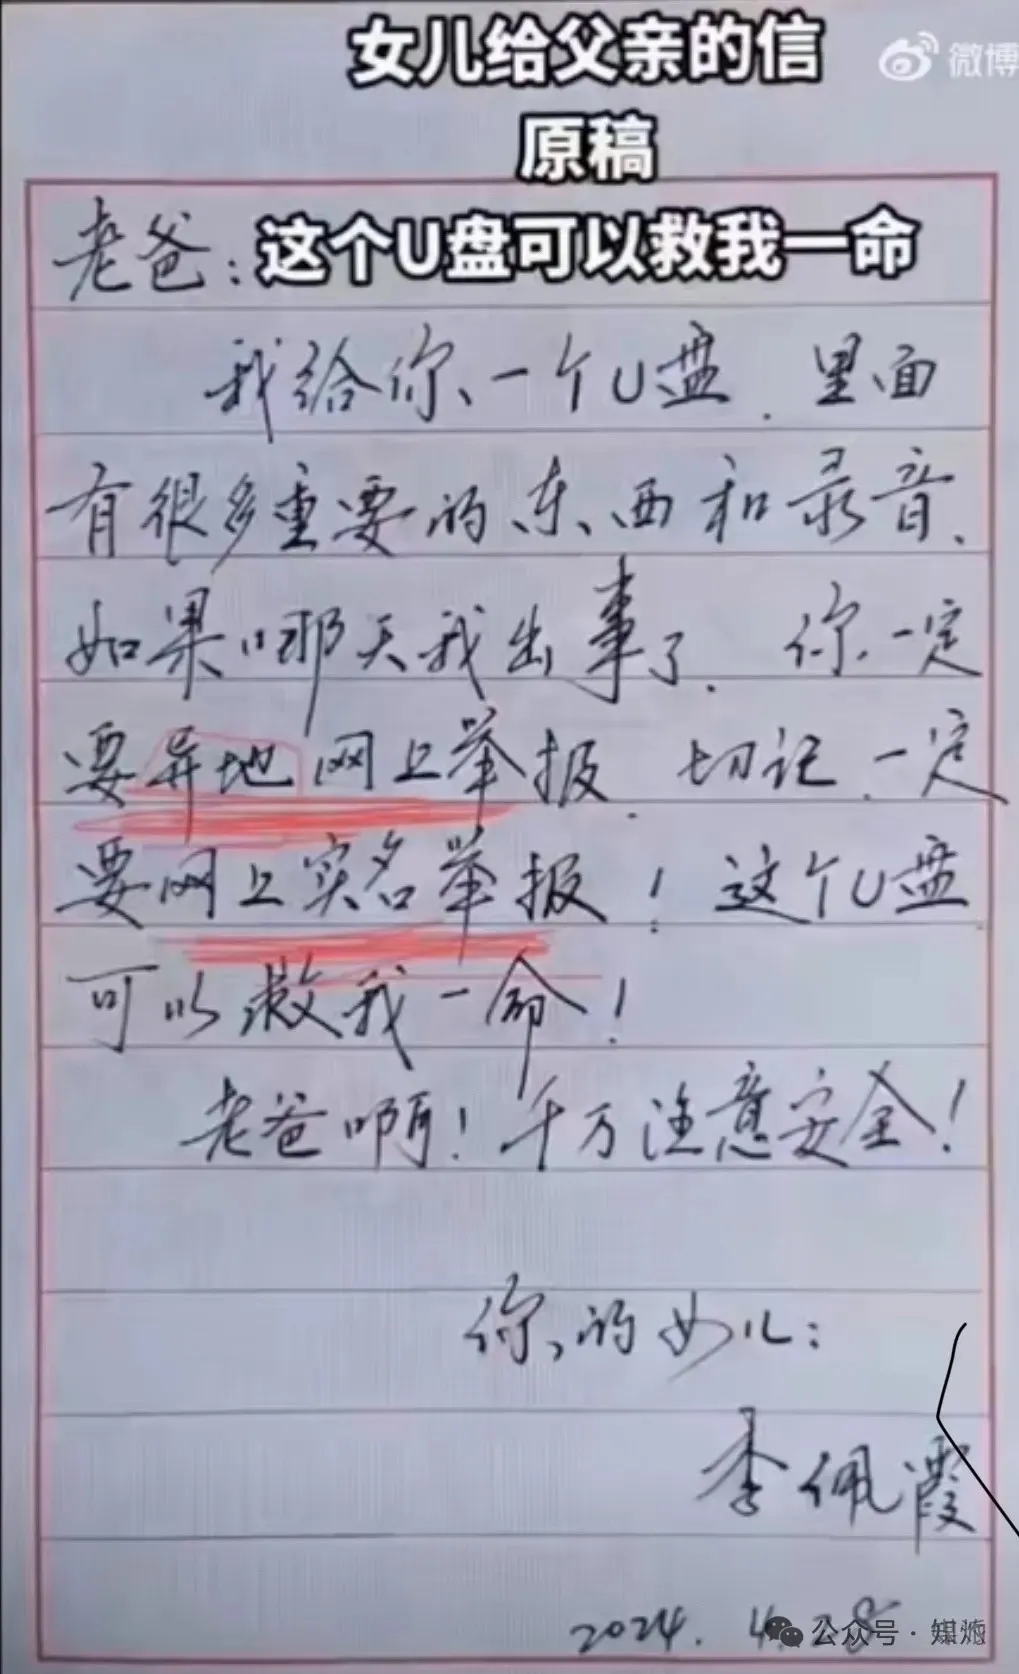 女儿给父亲的信
微博
原稿
老爸：这个U盘可以救我一命
我给你一个U盘．里面
有很多重要的东西和录音、
如果哪天我出事了．你一定
要异地网上举报．切记．一定
要网上实名举报！这个U盘
可以救我一命！
老爸啊！千万注意安全！
你的女儿：
李佩霞
2024. 4.28
公众号·媒炮